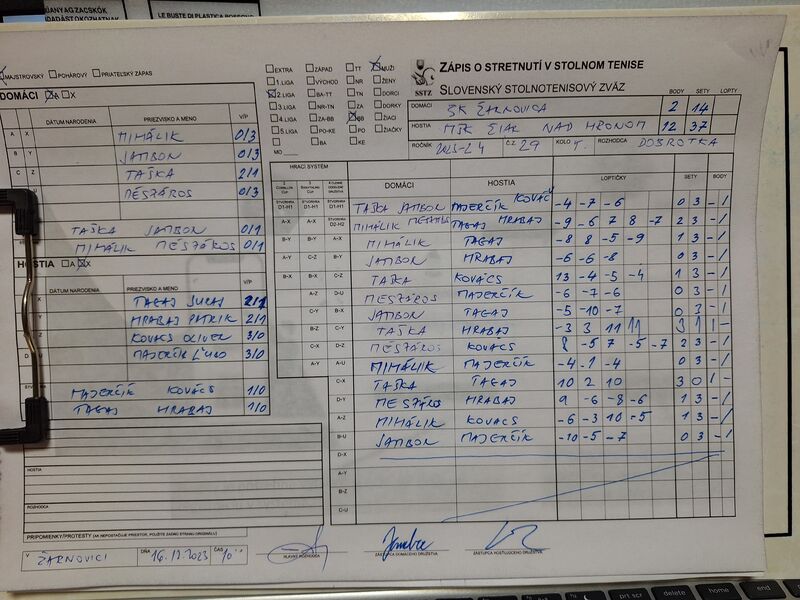 ZÁPIS O STRETNUTÍ V STOLNOM TENISE
SLOVENSKÝ STOLNOTENISOVÝ ZVÄZ
SSTZ
MAJSTROVSKÝ POHÁROVÝ PRIATEĽSKÝ ZÁPAS
EXTRA ZÁPAD TT MUŽI
1.LIGA VÝCHOD NR ŽENY
2.LIGA BA-TT TN DORCI
3.LIGA NR-TN ZA DORKY
4.LIGA ZA-BB BB ŽIACI
5.LIGA PO-KE PO ŽIAČKY
BA KE
MO
BODY SETY LOPTY
DOMÁCI ŠK ŽARNOVICA 2 14
HOSTIA MŠK ŽIAR NAD HRONOM 12 37
ROČNÍK Č.Z. 29 KOLO 7. ROZHODCA DOBROTKA
DOMÁCI A X
DÁTUM NARODENIA PRIEZVISKO A MENO V/P
A X MIHÁLIK 0/3
B Y JAMBON 0/3
C Z TAŠKA 2/1
MESZÁROS 0/3
TAŠKA JAMBON 0/1
MIHÁLIK MESZÁROS 0/1
HOSTIA A X
DÁTUM NARODENIA PRIEZVISKO A MENO V/P
TAGAJ JURAJ 2/1
HRABAJ PATRIK 2/1
KOVÁCS OLIVER 3/0
MAJERČÍK 3/0
MAJERČÍK KOVÁCS 1/0
TAGAJ HRABAJ 1/0
HRACÍ SYSTÉM
DOMÁCI HOSTIA LOPTIČKY SETY BODY
TAŠKA JAMBON MAJERČÍK KOVÁČ -4 -7 -6 0 3 -/
A-X MIHÁLIK MESZÁROS TAGAJ HRABAJ -9 -6 7 8 -7 2 3 -/
B-Y A-X MIHÁLIK TAGAJ -8 8 -5 -9 1 3 -/
A-Y C-Z B-Y JAMBON HRABAJ -6 -6 -8 0 3 -/
B-X B-X C-Z TAŠKA KOVÁCS 13 -4 -5 -4 1 3 -/
A-Z D-U MESZÁROS MAJERČÍK -6 -7 -6 0 3 -/
C-Y B-X JAMBON TAGAJ -5 -10 -7 0 3 -/
B-Z C-Y TAŠKA HRABAJ -3 3 11 11 3 1 1 -
C-X D-Z MESZÁROS KOVÁCS 8 -5 7 -5 -7 2 3 -/
A-Y A-U MIHÁLIK MAJERČÍK -4 -1 -4 0 3 -/
C-X TAŠKA TAGAJ 10 2 10 3 0 1 -
D-Y MESZÁROS HRABAJ 9 -6 -8 -6 1 3 -/
A-Z MIHÁLIK KOVÁCS -6 -3 10 -5 1 3 -/
B-U JAMBON MAJERČÍK -10 -5 -7 0 3 -/
D-X
A-Y
B-Z
C-U
HOSTIA
ROZHODCA
PRIPOMIENKY/PROTESTY (AK NEPOSTAČUJE PRIESTOR, POUŽITE ZADNÚ STRANU ORIGINÁLU)
V ŽARNOVICI DŇA 16.12.2023 ČAS 10
HLAVNÝ ROZHODCA ZÁSTUPCA DOMÁCEHO DRUŽSTVA ZÁSTUPCA HOSŤUJÚCEHO DRUŽSTVA
prt scr delete home end